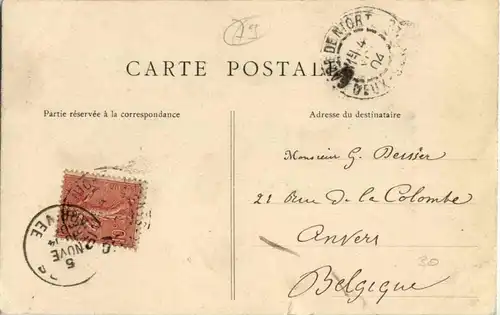 A9
CARTE POSTALE
GARE DE NIORT
4
04
DEUX
Partie réservée à la correspondance
Adresse du destinataire
Monsieur G. Deisser
21 Rue de la Colombe
Anvers
Belgique
30
5
NOVE
04